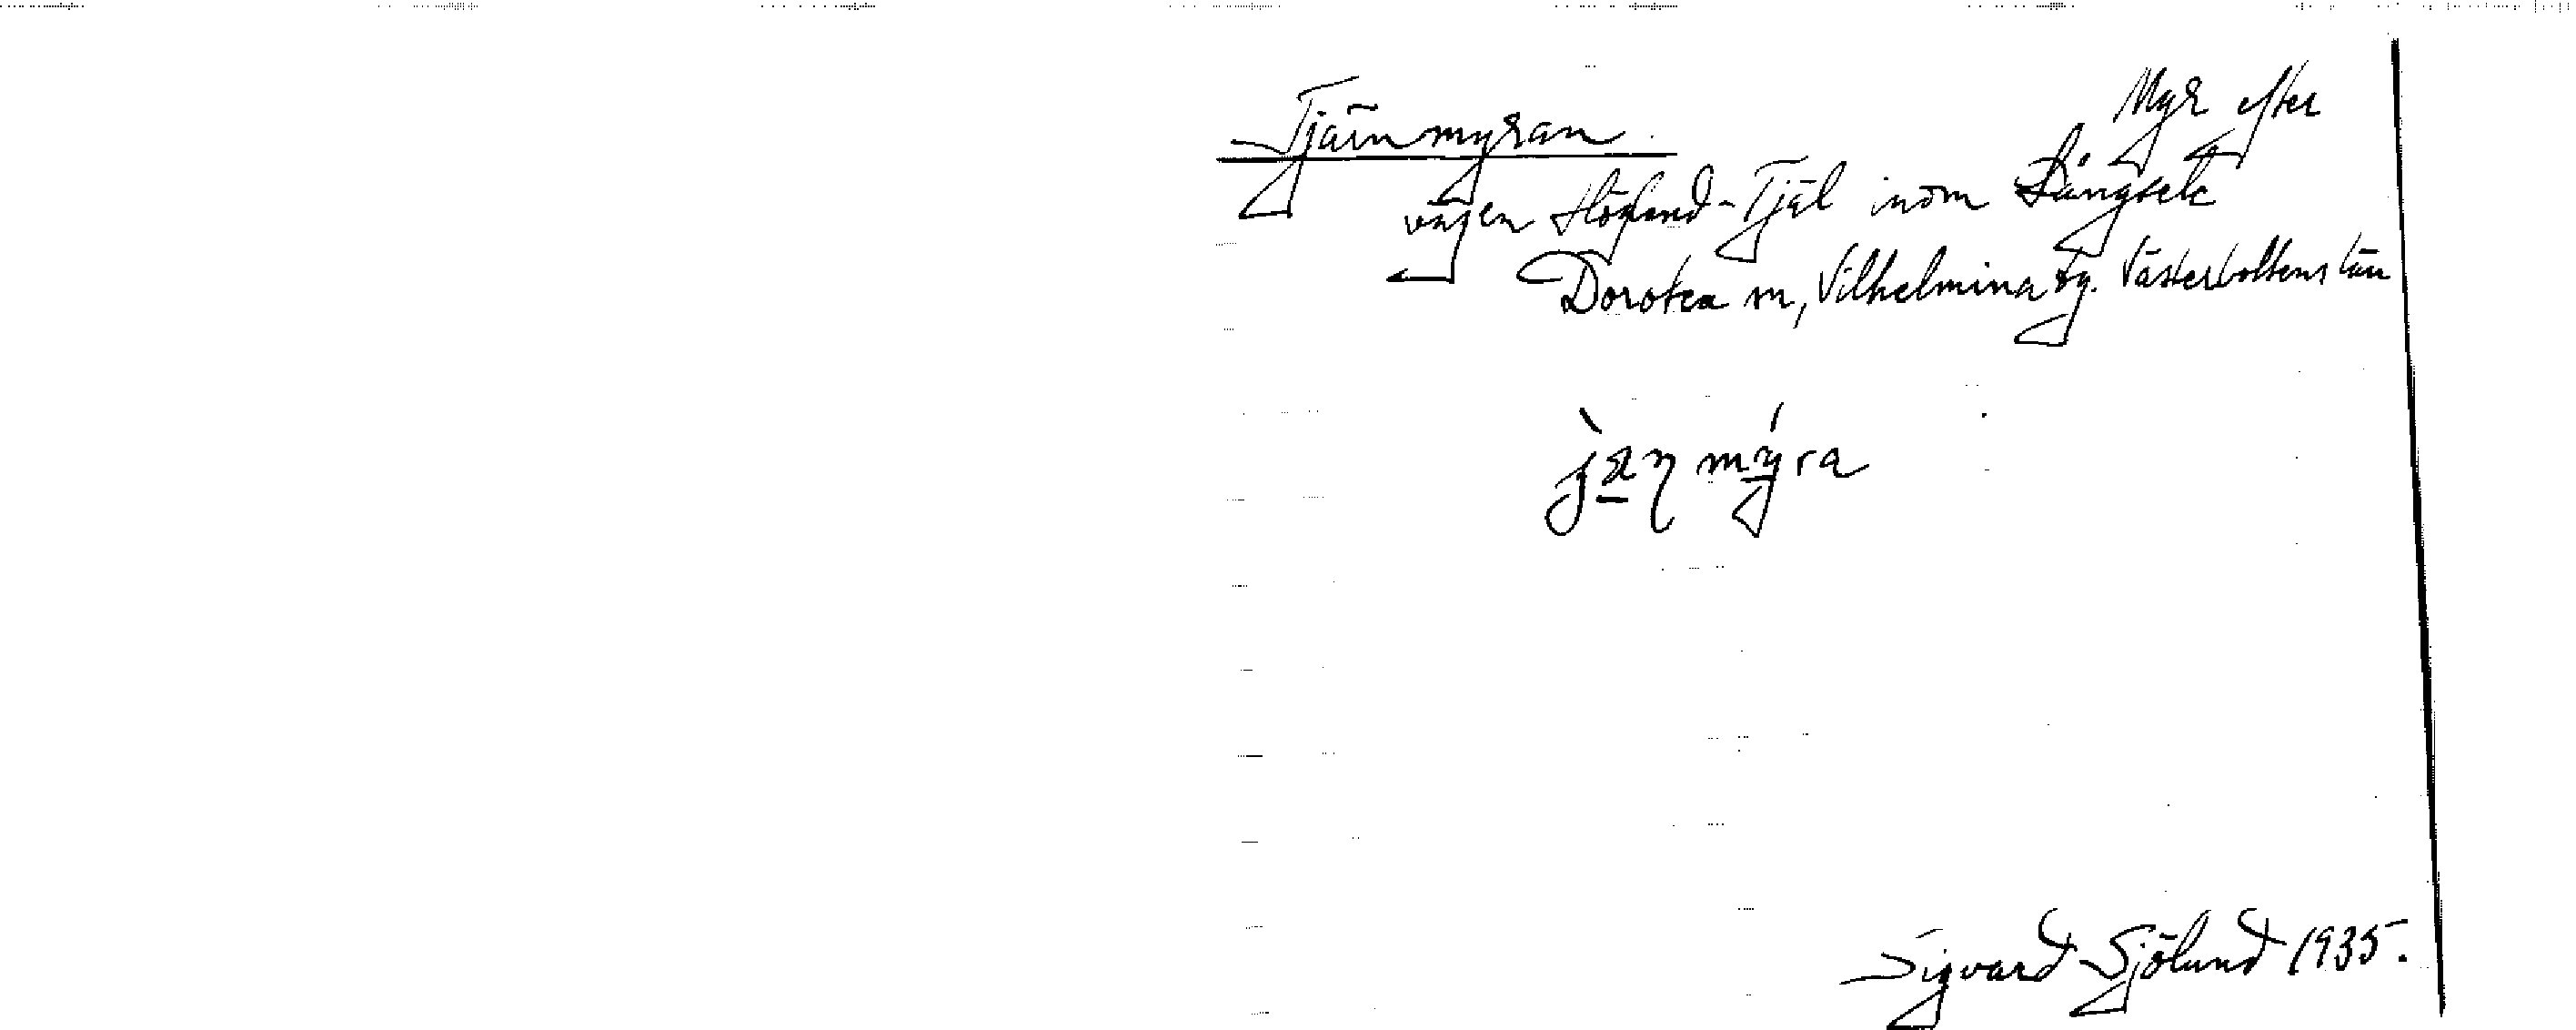 Tjärnmyran. Myr efter
vägen Höglund-Tjäl inom Långsele
Dorotea sn, Vilhelmina tg. Västerbottens län
jæn myra
Sigvard Sjölund 1935.